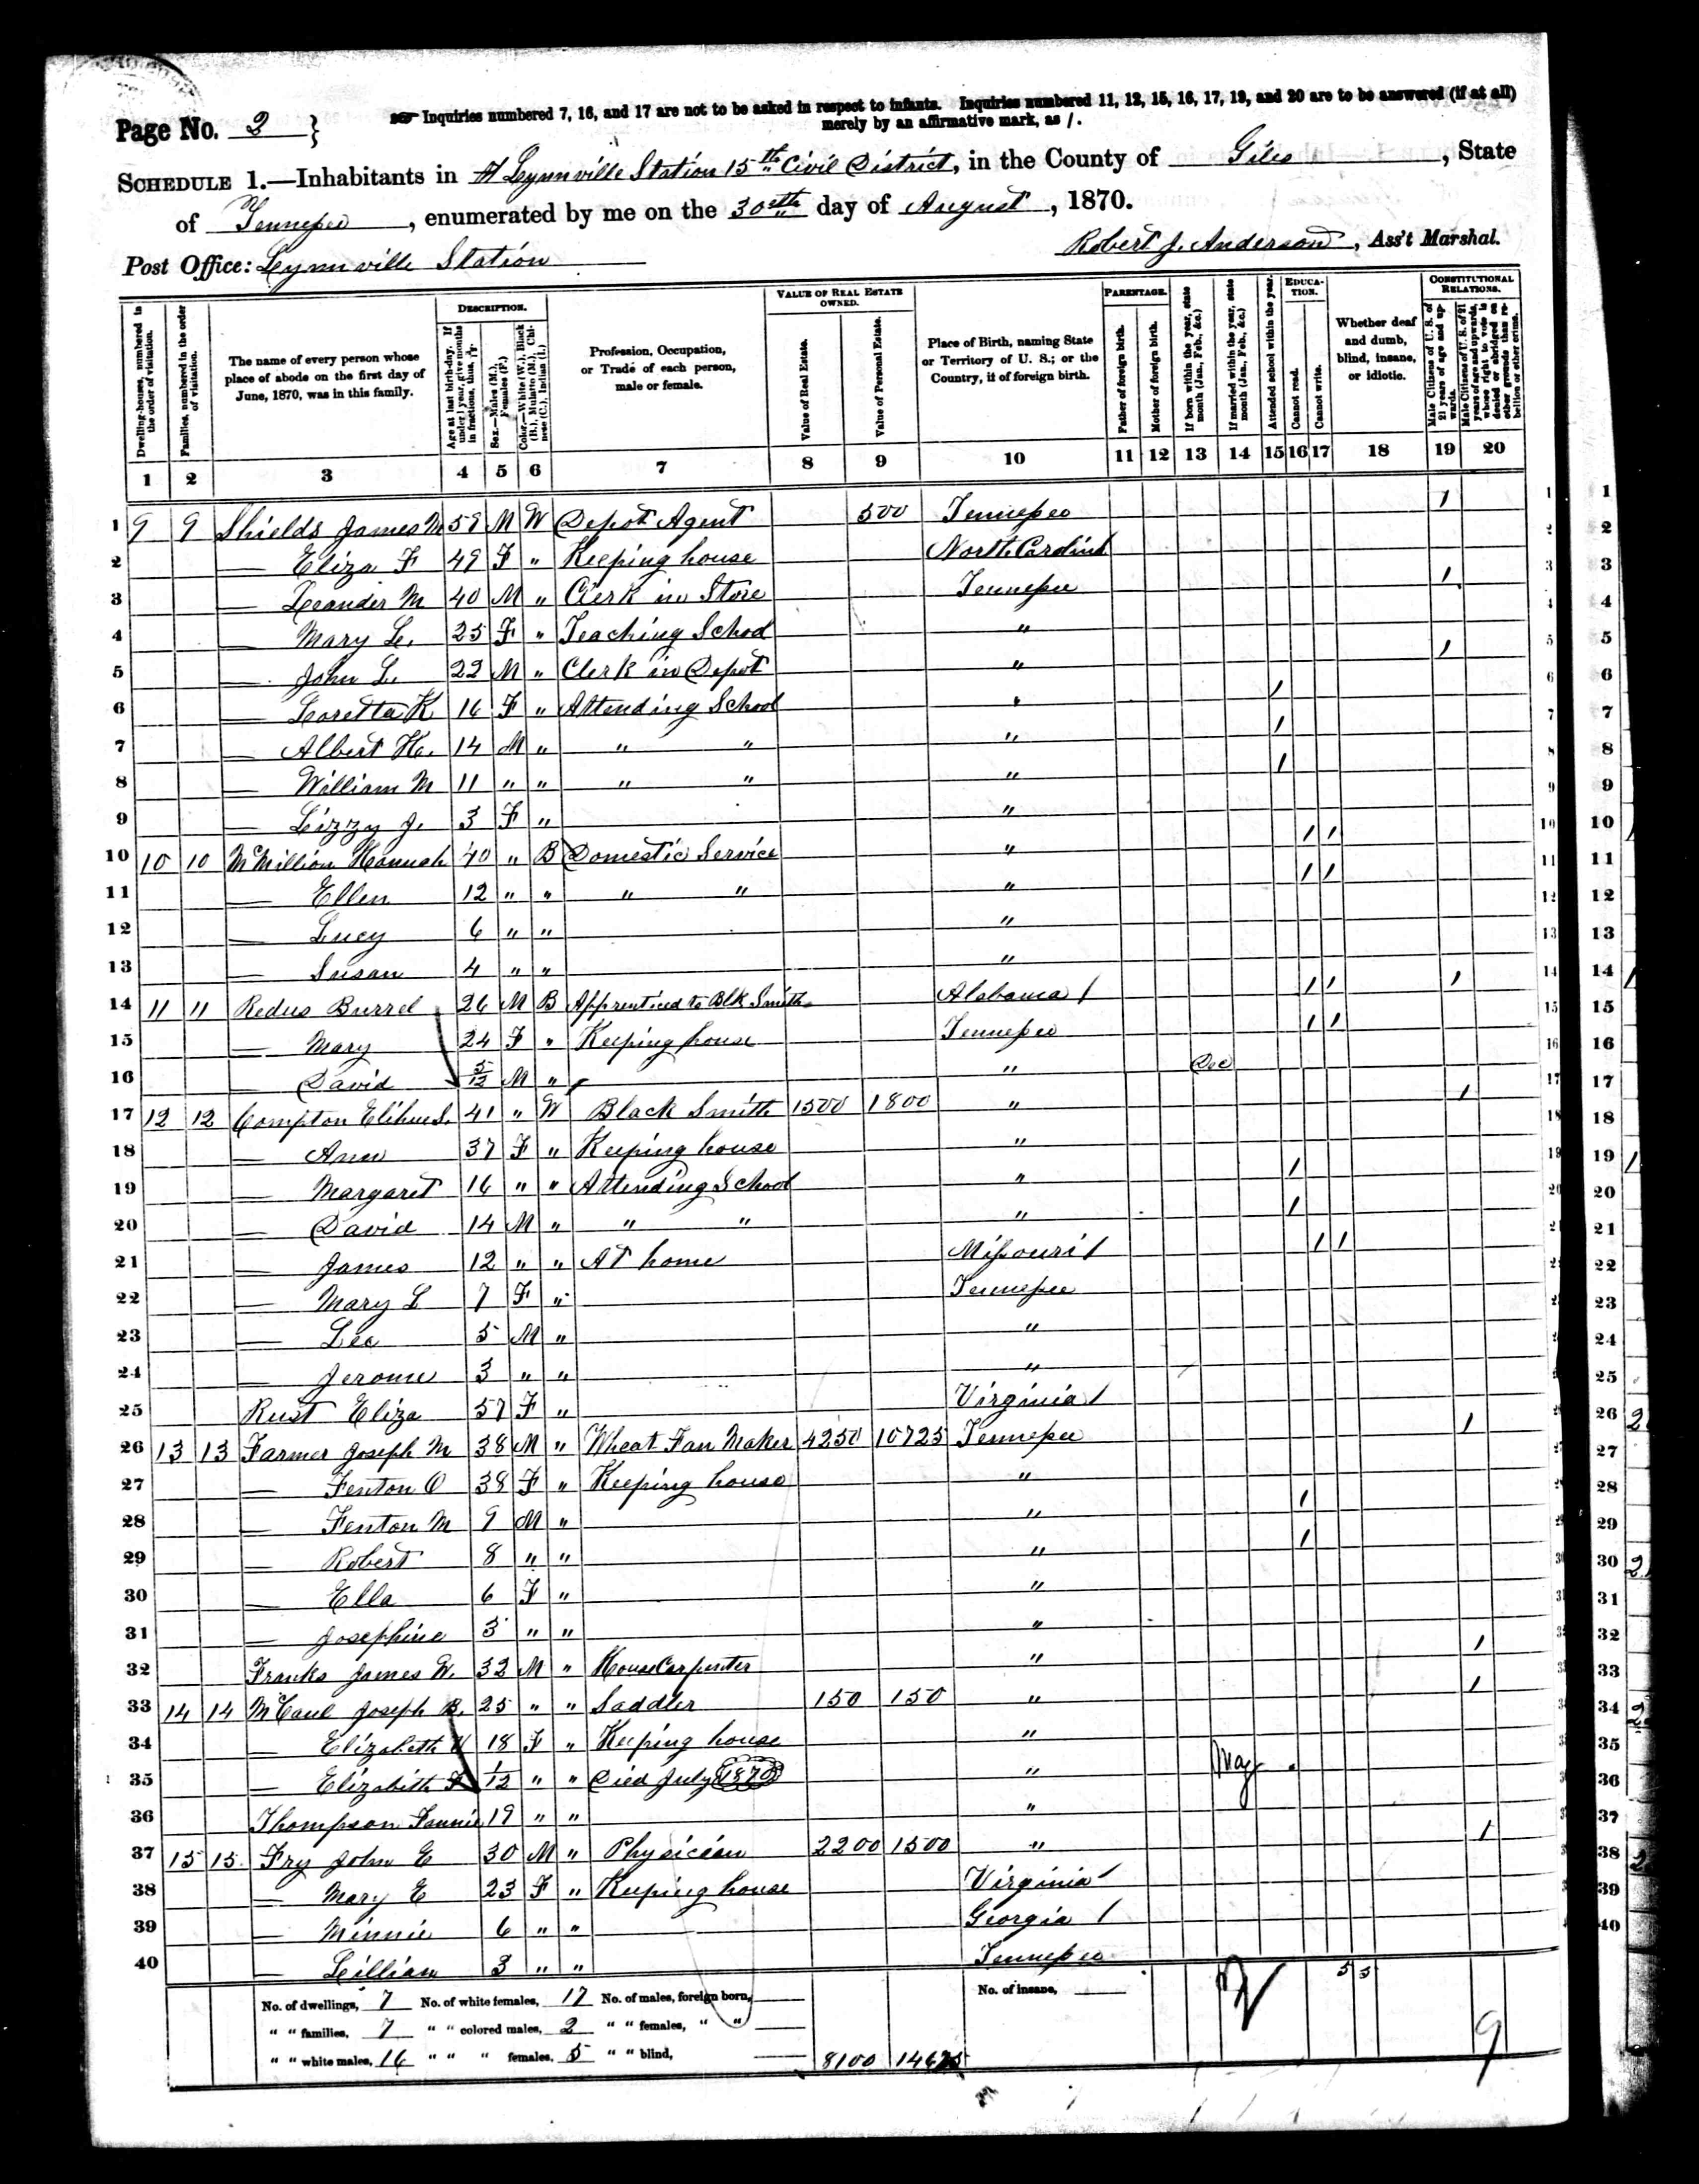 Page No. 2 }
☞ Inquiries numbered 7, 16, and 17 are not to be asked in respect to infants. Inquiries numbered 11, 12, 15, 16, 17, 19, and 20 are to be answered (if at all)
merely by an affirmative mark, as /.
SCHEDULE 1.—Inhabitants in Lynnville Station 15th Civil District, in the County of Giles, State
of Tennessee, enumerated by me on the 30th day of August, 1870.
Post Office: Lynnville Station
Robert J. Anderson, Ass't Marshal.
Dwelling-houses, numbered in the order of visitation.
Families, numbered in the order of visitation.
The name of every person whose place of abode on the first day of June, 1870, was in this family.
DESCRIPTION.
Age at last birth-day. If under 1 year, give months in fractions, thus, 3/12
Sex.—Males (M.), Females (F.)
Color.—White (W.), Black (B.), Mulatto (M.), Chinese (C.), Indian (I.)
Profession, Occupation, or Trade of each person, male or female.
VALUE OF REAL ESTATE OWNED.
Value of Real Estate.
Value of Personal Estate.
Place of Birth, naming State or Territory of U. S.; or the Country, if of foreign birth.
PARENTAGE.
Father of foreign birth.
Mother of foreign birth.
If born within the year, state month (Jan., Feb., &c.)
If married within the year, state month (Jan., Feb., &c.)
Attended school within the year.
EDUCATION.
Cannot read.
Cannot write.
Whether deaf and dumb, blind, insane, or idiotic.
CONSTITUTIONAL RELATIONS.
Male Citizens of U. S. of 21 years of age and upwards.
Male Citizens of U. S. of 21 years of age and upwards, whose right to vote is denied or abridged on other grounds than rebellion or other crime.
1 2 3 4 5 6 7 8 9 10 11 12 13 14 15 16 17 18 19 20
1 9 9 Shields James M 59 M W Depot Agent 500 Tennessee /
2 — Eliza F 49 F " Keeping house North Carolina
3 — Leander M 40 M " Clerk in Store Tennessee /
4 — Mary L. 25 F " Teaching School "
5 — John L. 22 M " Clerk in Depot " /
6 — Loretta K 16 F " Attending School " /
7 — Albert H. 14 M " " " " /
8 — William M 11 " " " " " /
9 — Lizzy J. 3 F " "
10 10 10 McMillion Hannah 40 " B Domestic Service " / /
11 — Ellen 12 " " " " " / /
12 — Lucy 6 " " "
13 — Susan 4 " " "
14 11 11 Redus Burrel 26 M B Apprenticed to Blk Smith Alabama / / / /
15 — Mary 24 F " Keeping house Tennessee / /
16 — David 5/12 M " " Dec
17 12 12 Compton Elihu S. 41 " W Black Smith 1500 1800 " /
18 — Ann 37 F " Keeping house "
19 — Margaret 16 " " Attending School " /
20 — David 14 M " " " " /
21 — James 12 " " At home Missouri / / /
22 — Mary L 7 F " Tennessee
23 — Lee 5 M " "
24 — Jerome 3 " " "
25 Rust Eliza 57 F " Virginia /
26 13 13 Farmer Joseph M 38 M " Wheat Fan Maker 4250 10725 Tennessee /
27 — Fenton O 38 F " Keeping house "
28 — Fenton M 9 M " " /
29 — Robert 8 " " " /
30 — Ella 6 F " "
31 — Josephine 3 " " "
32 Franks James W. 32 M " House Carpenter " /
33 14 14 McCaul Joseph B. 25 " " Saddler 150 150 " /
34 — Elizabeth 18 F " Keeping house "
35 — Elizabeth F 1/12 " " Died July 1870 " May
36 Thompson Fannie 19 " " "
37 15 15 Fry John E 30 M " Physician 2200 1500 " /
38 — Mary E 23 F " Keeping house Virginia /
39 — Minnie 6 " " Georgia /
40 — Lillian 3 " " Tennessee
No. of dwellings, 7 No. of white females, 17 No. of males, foreign born, — No. of insane, — 5 5
" " families, 7 " " colored males, 2 " " females, " " —
" " white males, 16 " " " females, 5 " " blind, — 8100 14675 9